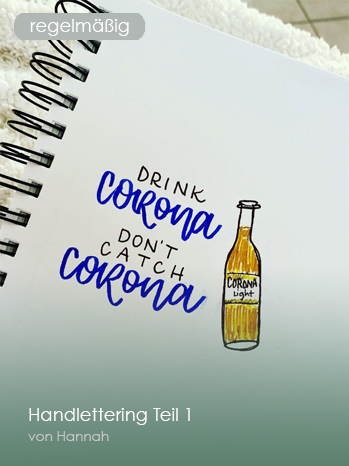 regelmäßig
DRINK
corona
DON'T
CATCH
corona
CORONA
Light
Handlettering Teil 1
von Hannah